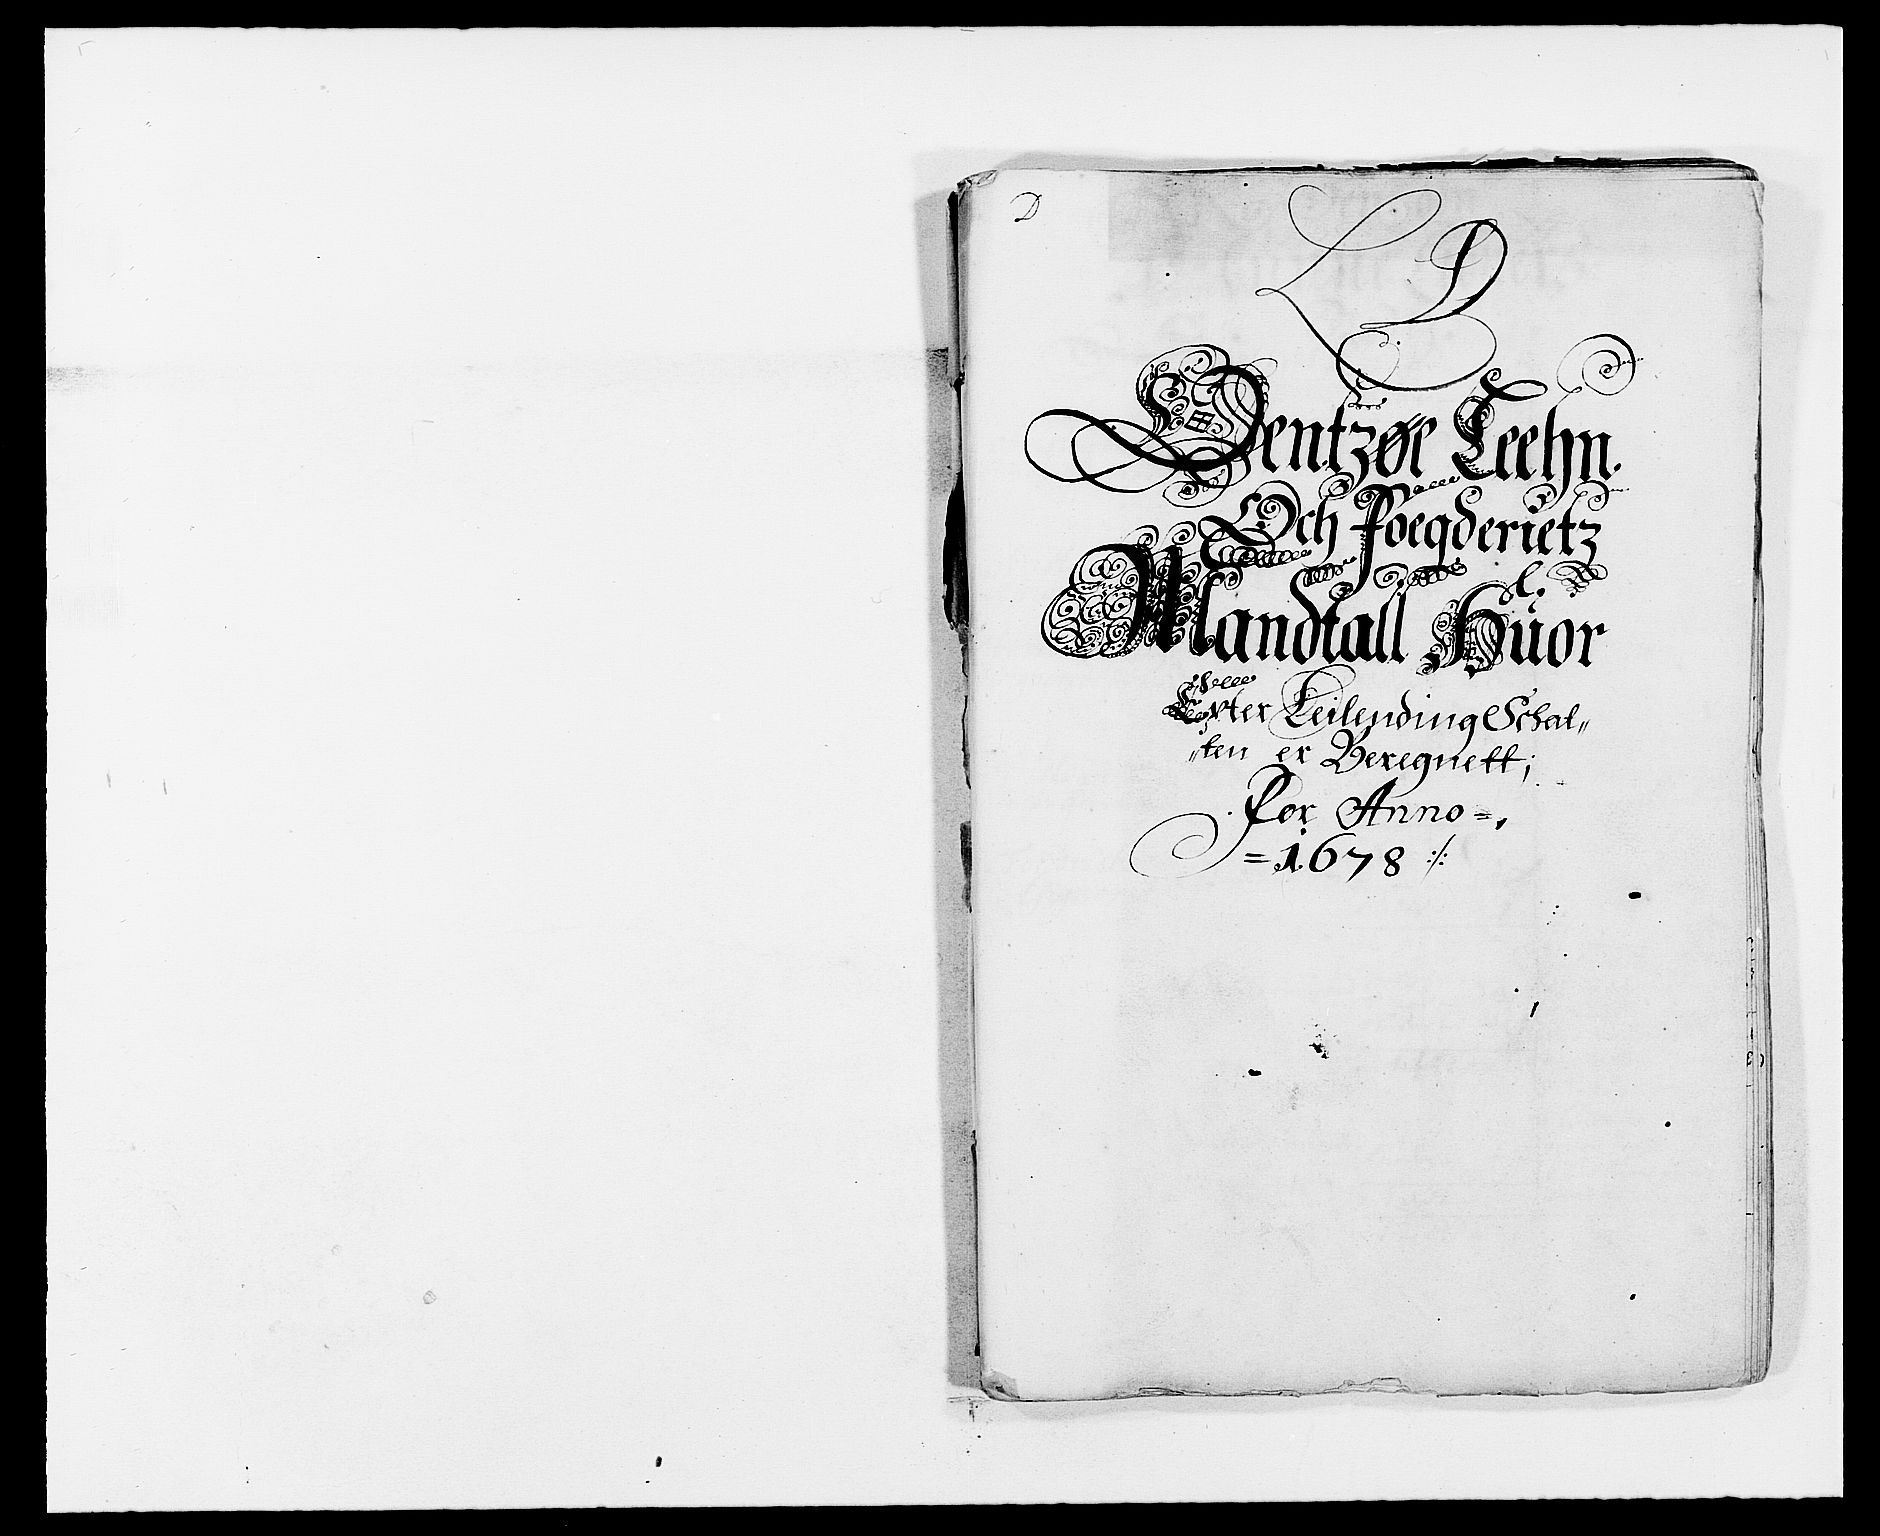 D
LD
Jentzøe Leehn.
Och Foegderietz
Mandtall Huor
Epter Leilending Schal„
„ten er Beregnett;
For Anno =,
= 1678 ∙/∙